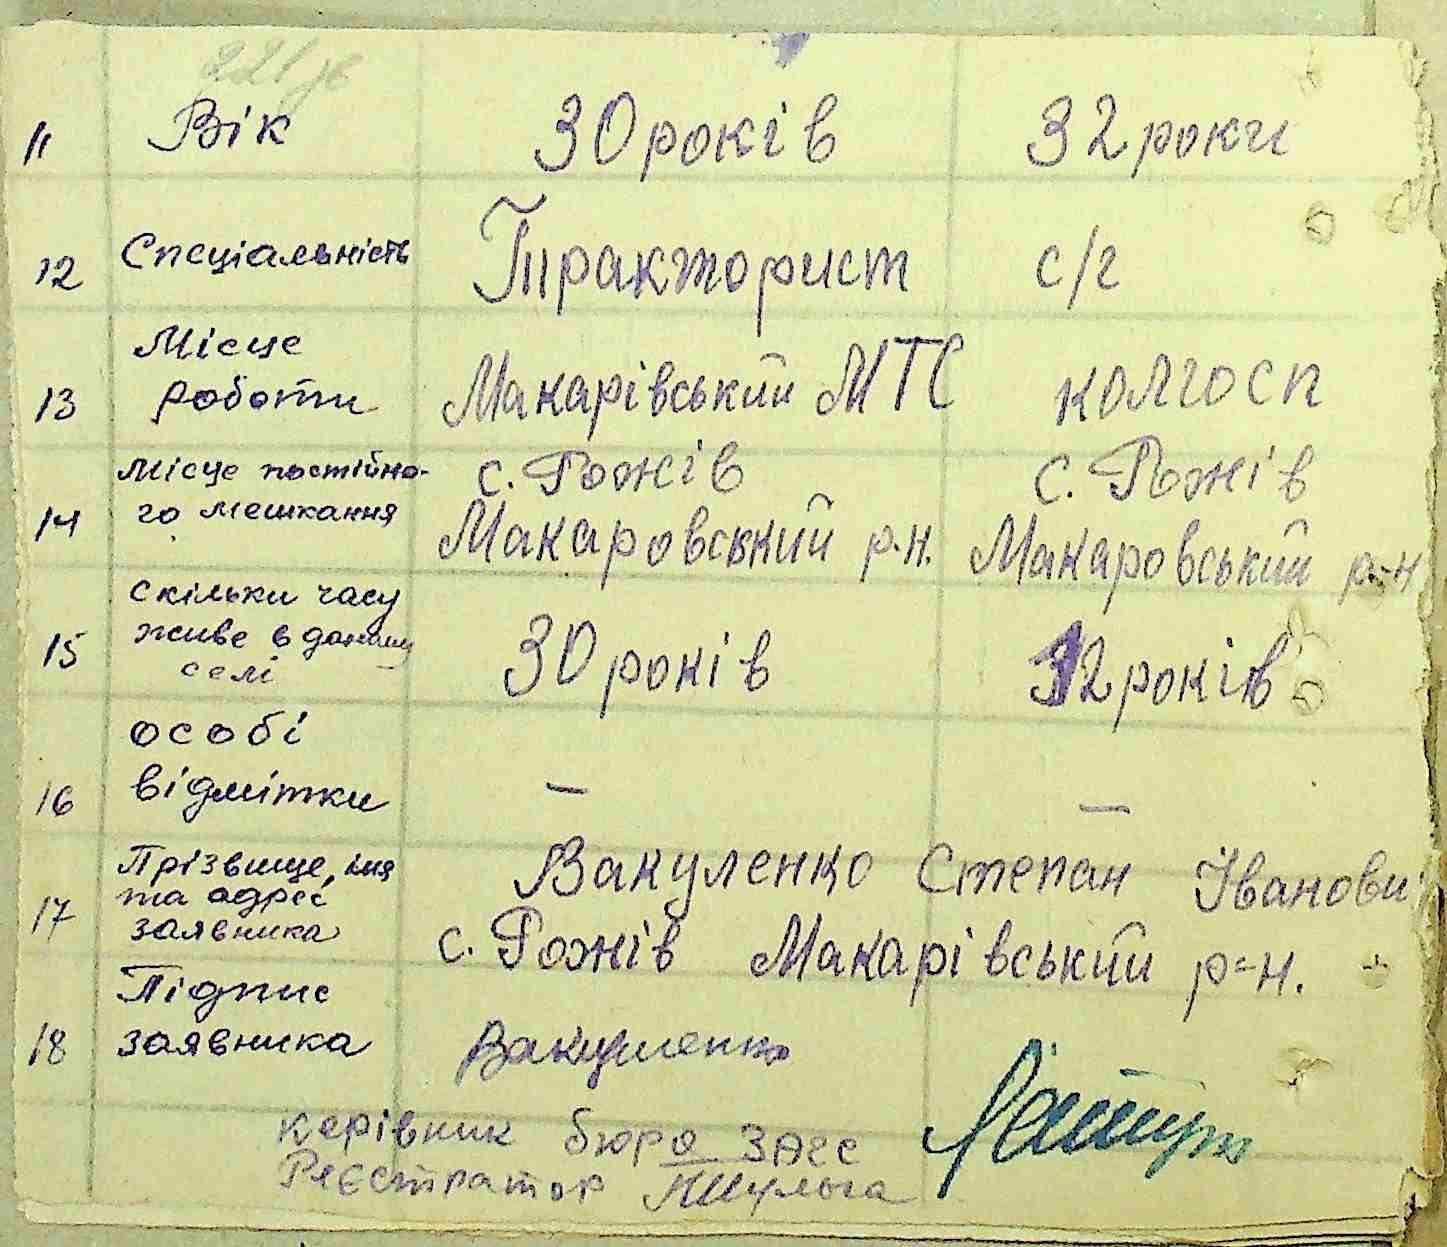 11 Вік 30 років 32 роки
12 Спеціальність Тракторист с/г
Місце
13 роботи Макарівський МТС колгосп
Місце постійно- с. Рожів с. Рожів
14 го мешкання Макаровский р.н. Макаровський р-н
скільки часу
15 живе в даному 30 років 32 років
селі
особі
16 відмітки — —
Прізвище, імя Вакуленко Степан Іванович
17 та адрес
заявника с. Рожів Макарівський р-н.
Підпис
18 заявника Вакуленко
керівник бюро ЗАГС
Реєстратор Шульга